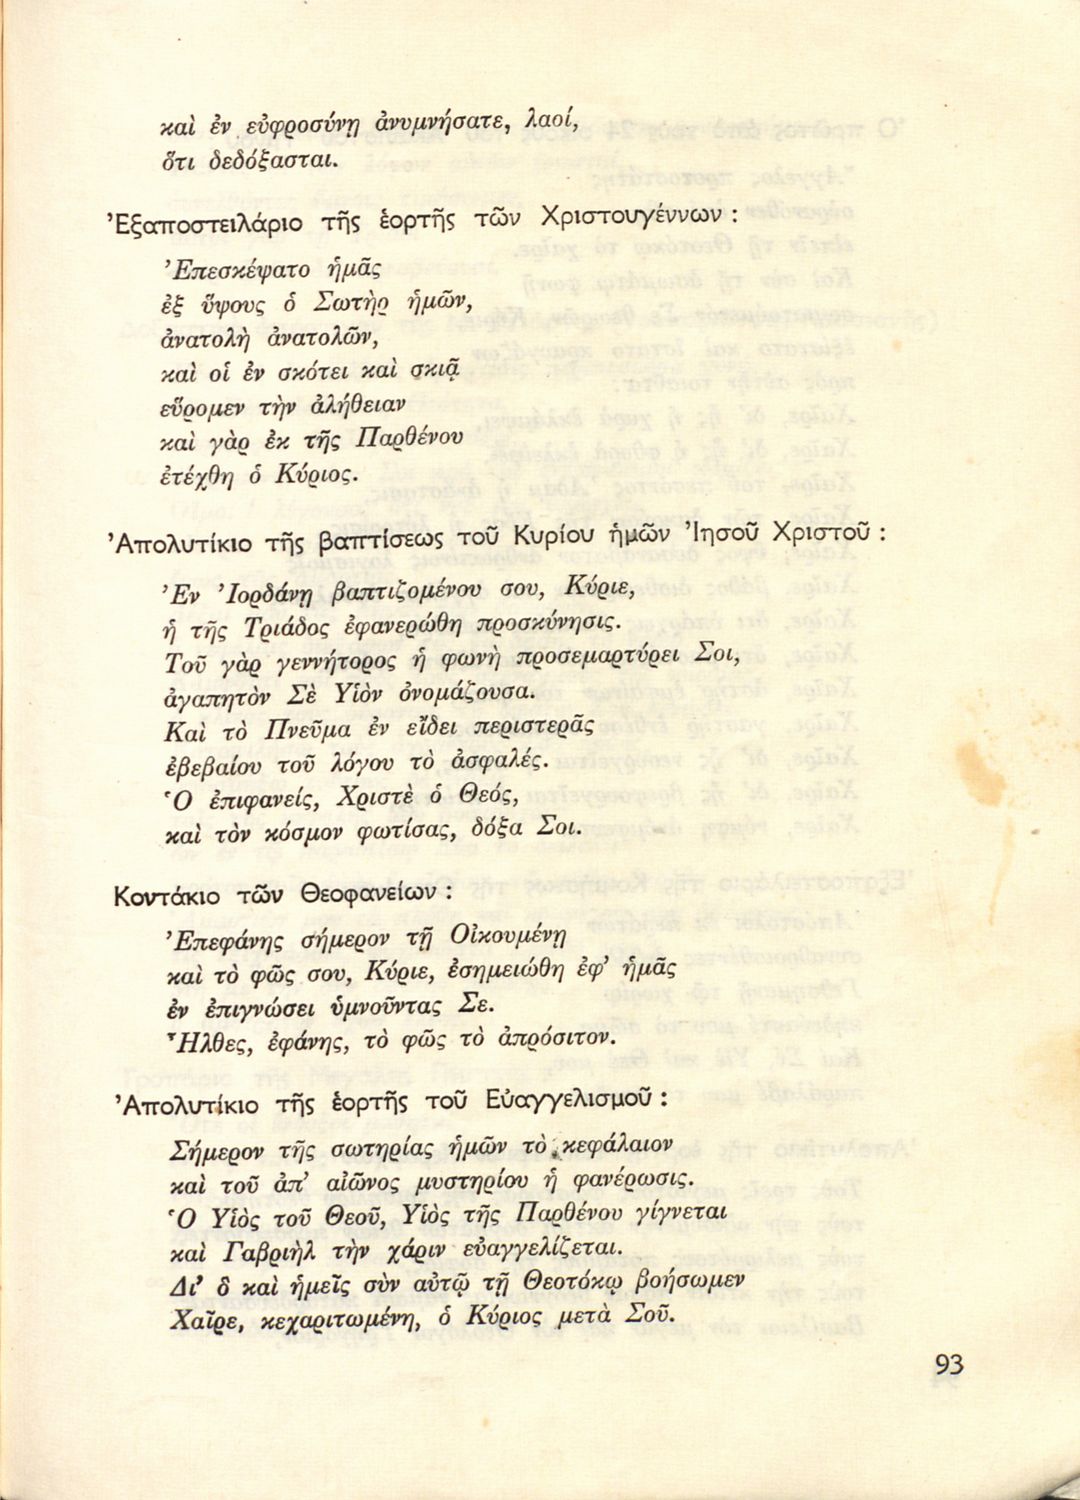 καὶ ἐν εὐφροσύνῃ ἀνυμνήσατε, λαοί,
ὅτι δεδόξασται.
Ἐξαποστειλάριο τῆς ἑορτῆς τῶν Χριστουγέννων :
Ἐπεσκέψατο ἡμᾶς
ἐξ ὕψους ὁ Σωτὴρ ἡμῶν,
ἀνατολὴ ἀνατολῶν,
καὶ οἱ ἐν σκότει καὶ σκιᾷ
εὕρομεν τὴν ἀλήθειαν
καὶ γὰρ ἐκ τῆς Παρθένου
ἐτέχθη ὁ Κύριος.
Ἀπολυτίκιο τῆς βαπτίσεως τοῦ Κυρίου ἡμῶν Ἰησοῦ Χριστοῦ :
Ἐν Ἰορδάνῃ βαπτιζομένου σου, Κύριε,
ἡ τῆς Τριάδος ἐφανερώθη προσκύνησις.
Τοῦ γὰρ γεννήτορος ἡ φωνὴ προσεμαρτύρει Σοι,
ἀγαπητὸν Σὲ Υἱὸν ὀνομάζουσα.
Καὶ τὸ Πνεῦμα ἐν εἴδει περιστερᾶς
ἐβεβαίου τοῦ λόγου τὸ ἀσφαλές.
Ὁ ἐπιφανείς, Χριστὲ ὁ Θεός,
καὶ τὸν κόσμον φωτίσας, δόξα Σοι.
Κοντάκιο τῶν Θεοφανείων :
Ἐπεφάνης σήμερον τῇ Οἰκουμένῃ
καὶ τὸ φῶς σου, Κύριε, ἐσημειώθη ἐφ’ ἡμᾶς
ἐν ἐπιγνώσει ὑμνοῦντας Σε.
Ἦλθες, ἐφάνης, τὸ φῶς τὸ ἀπρόσιτον.
Ἀπολυτίκιο τῆς ἑορτῆς τοῦ Εὐαγγελισμοῦ :
Σήμερον τῆς σωτηρίας ἡμῶν τὸ κεφάλαιον
καὶ τοῦ ἀπ’ αἰῶνος μυστηρίου ἡ φανέρωσις.
Ὁ Υἱὸς τοῦ Θεοῦ, Υἱὸς τῆς Παρθένου γίγνεται
καὶ Γαβριὴλ τὴν χάριν εὐαγγελίζεται.
Δι’ ὃ καὶ ἡμεῖς σὺν αὐτῷ τῇ Θεοτόκῳ βοήσωμεν
Χαῖρε, κεχαριτωμένη, ὁ Κύριος μετὰ Σοῦ.
93